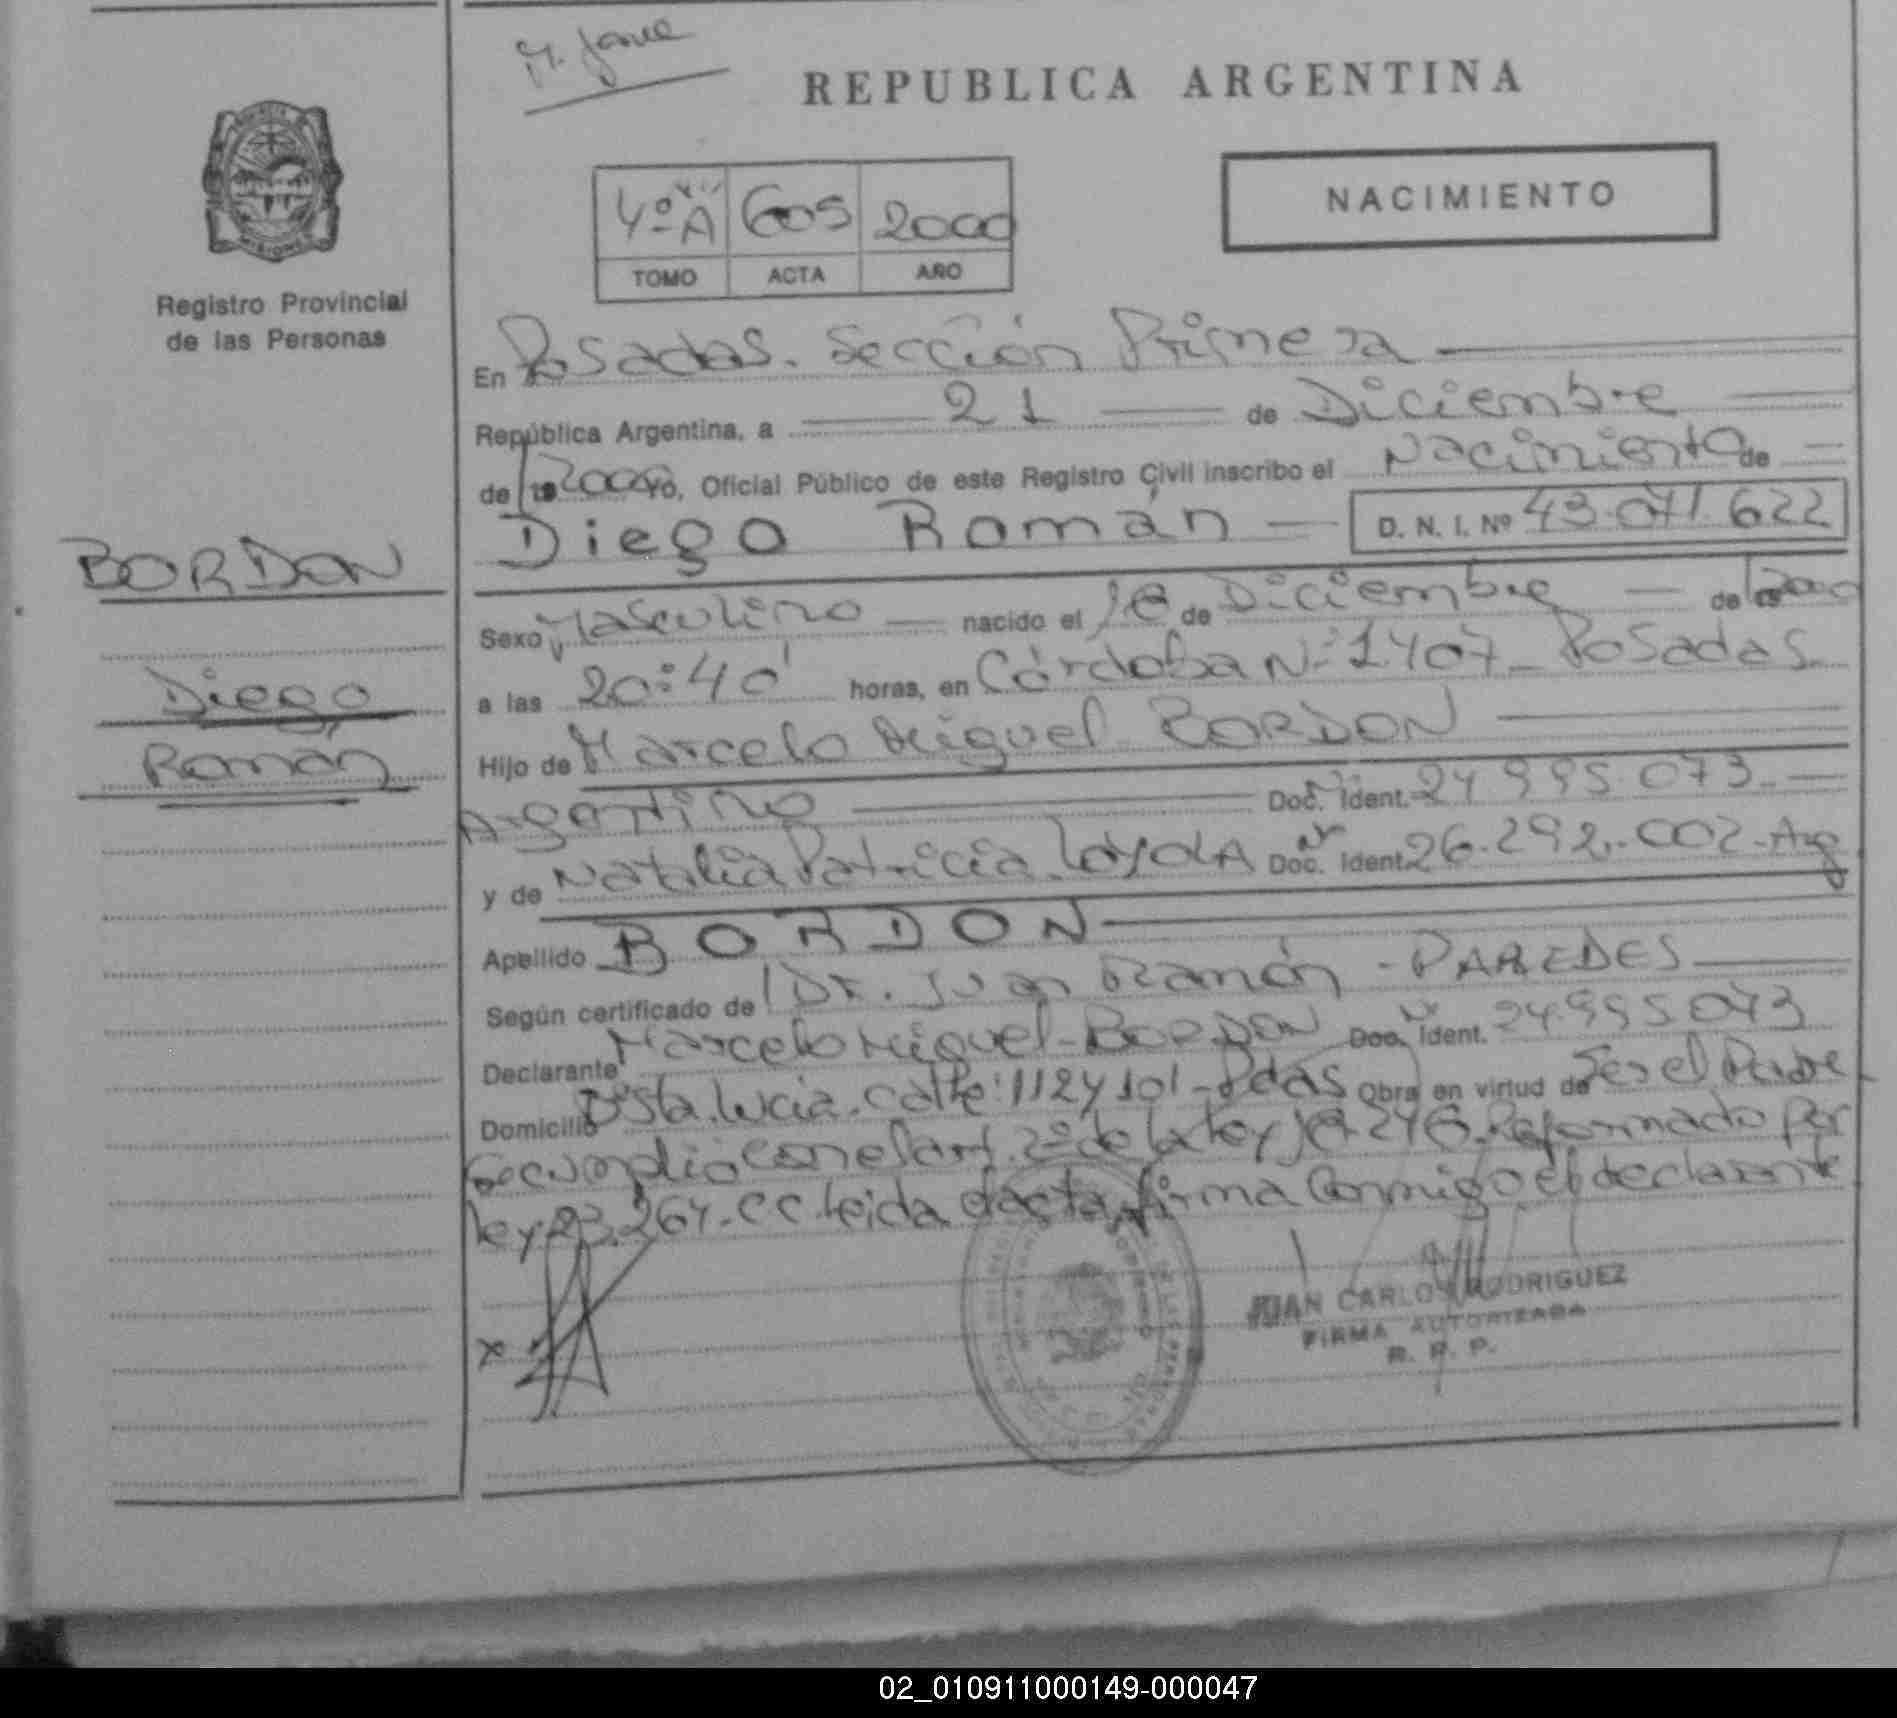 REPUBLICA ARGENTINA
NACIMIENTO
4º A 605 2000
TOMO ACTA AÑO
Registro Provincial
de las Personas
En Posadas. Sección Primera
República Argentina, a 21 de Diciembre
de 19 2000 Yo, Oficial Público de este Registro Civil inscribo el Nacimiento de
Diego Román D. N. I. Nº 43.071.622
BORDON
Diego
Román
Sexo Masculino nacido el de Diciembre de 2000
a las 20:40' horas, en Córdoba Nº 1407 - Posadas
Hijo de Marcelo Miguel BORDON
Argentino Doc. Ident. 24.995.073
y de Natalia Patricia Loyola Doc. Ident. 26.292.002 - Arg
Apellido BORDON
Según certificado de Dr. Juan Ramón - PAREDES
Declarante Marcelo Miguel - BORDON Doc. Ident. 24.995.073
Domicilio Sta. Lucia. calle: 112 y 101 - Pdas Obra en virtud de Ser el Padre
con el art. 2º de la ley Reformado por
ley 23.264. CC. leida el acta, firma Conmigo el declarante
JUAN CARLOS RODRIGUEZ
FIRMA AUTORIZADA
R. P. P.
02_010911000149-000047